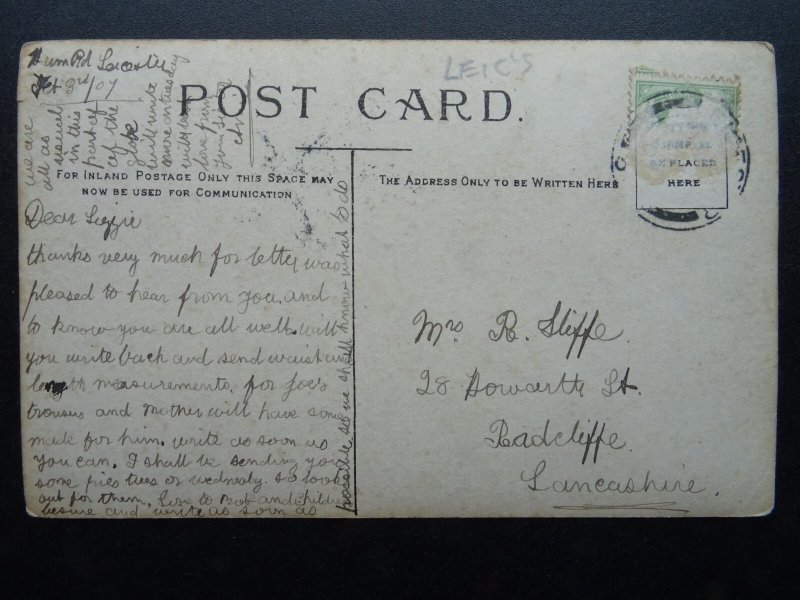 LEIC'S
POST CARD.
FOR INLAND POSTAGE ONLY THIS SPACE MAY
NOW BE USED FOR COMMUNICATION
THE ADDRESS ONLY TO BE WRITTEN HERE
BE PLACED
HERE
Rd Leicester
Oct 3rd/07
Dear Lizzie
thanks very much for letty was
pleased to hear from you. and
to know you are all well. will
you write back and send waist and
length measurements. for Joe's
trousers and Mother will have some
made for him. write as soon as
you can. I shall be sending you
some pies tues or wednesdy. so look
out for them. Love to Bob and children
besure and write as soon as
possible so we shall know what to do
we are
all as
usual
in this
part of
of the
globe
will write
more on tuesday
with
love from
your sister
Mrs R. Sliffe.
28 Howarth St.
Radcliffe.
Lancashire.